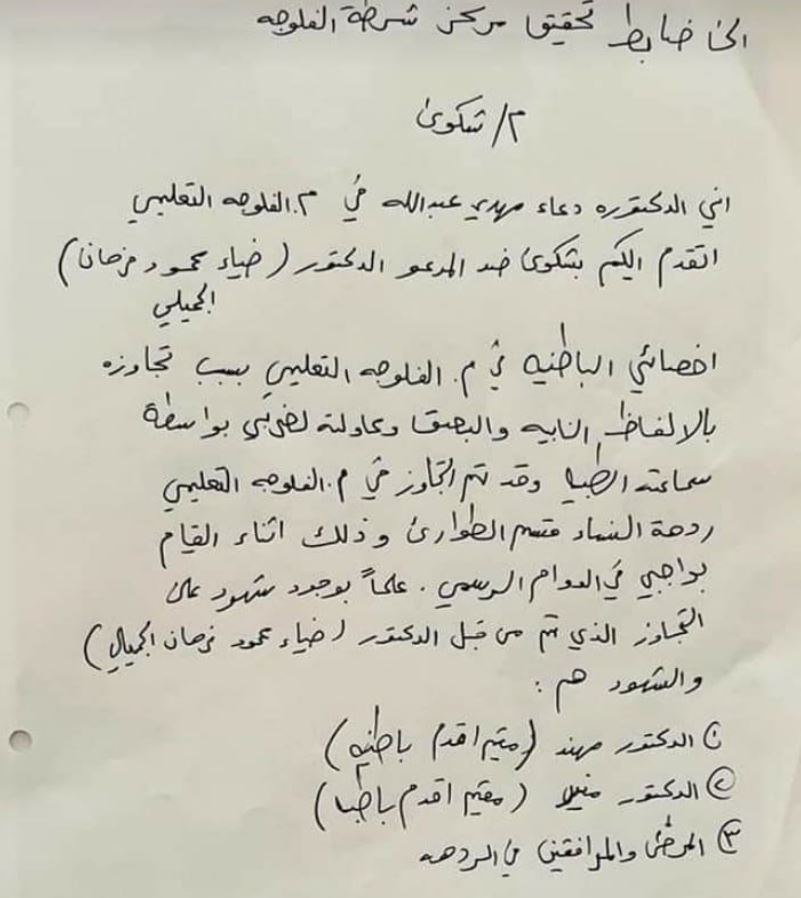 الى ضابط تحقيق مركز شرطة الفلوجه
م/ شكوى
اني الدكتوره دعاء مهدي عبدالله في م. الفلوجه التعليمي
اتقدم اليكم بشكوى ضد المدعو الدكتور (ضياء محمود فرحان)
الجميلي
اخصائي الباطنيه في م. الفلوجه التعليمي بسبب تجاوزه
بالالفاظ النابيه والبصق ومحاولته لضربي بواسطة
سماعته الطبيه وقد تم التجاوز في م. الفلوجه التعليمي
ردهة النساء قسم الطوارئ وذلك اثناء القيام
بواجبي في الدوام الرسمي. علماً بوجود شهود على
التجاوز الذي تم من قبل الدكتور (ضياء محمود فرحان الجميلي)
والشهود هم :
١ الدكتور مهند (مقيم اقدم باطنيه)
٢ الدكتور (مقيم اقدم)
٣ المرضى والمرافقين في الردهه